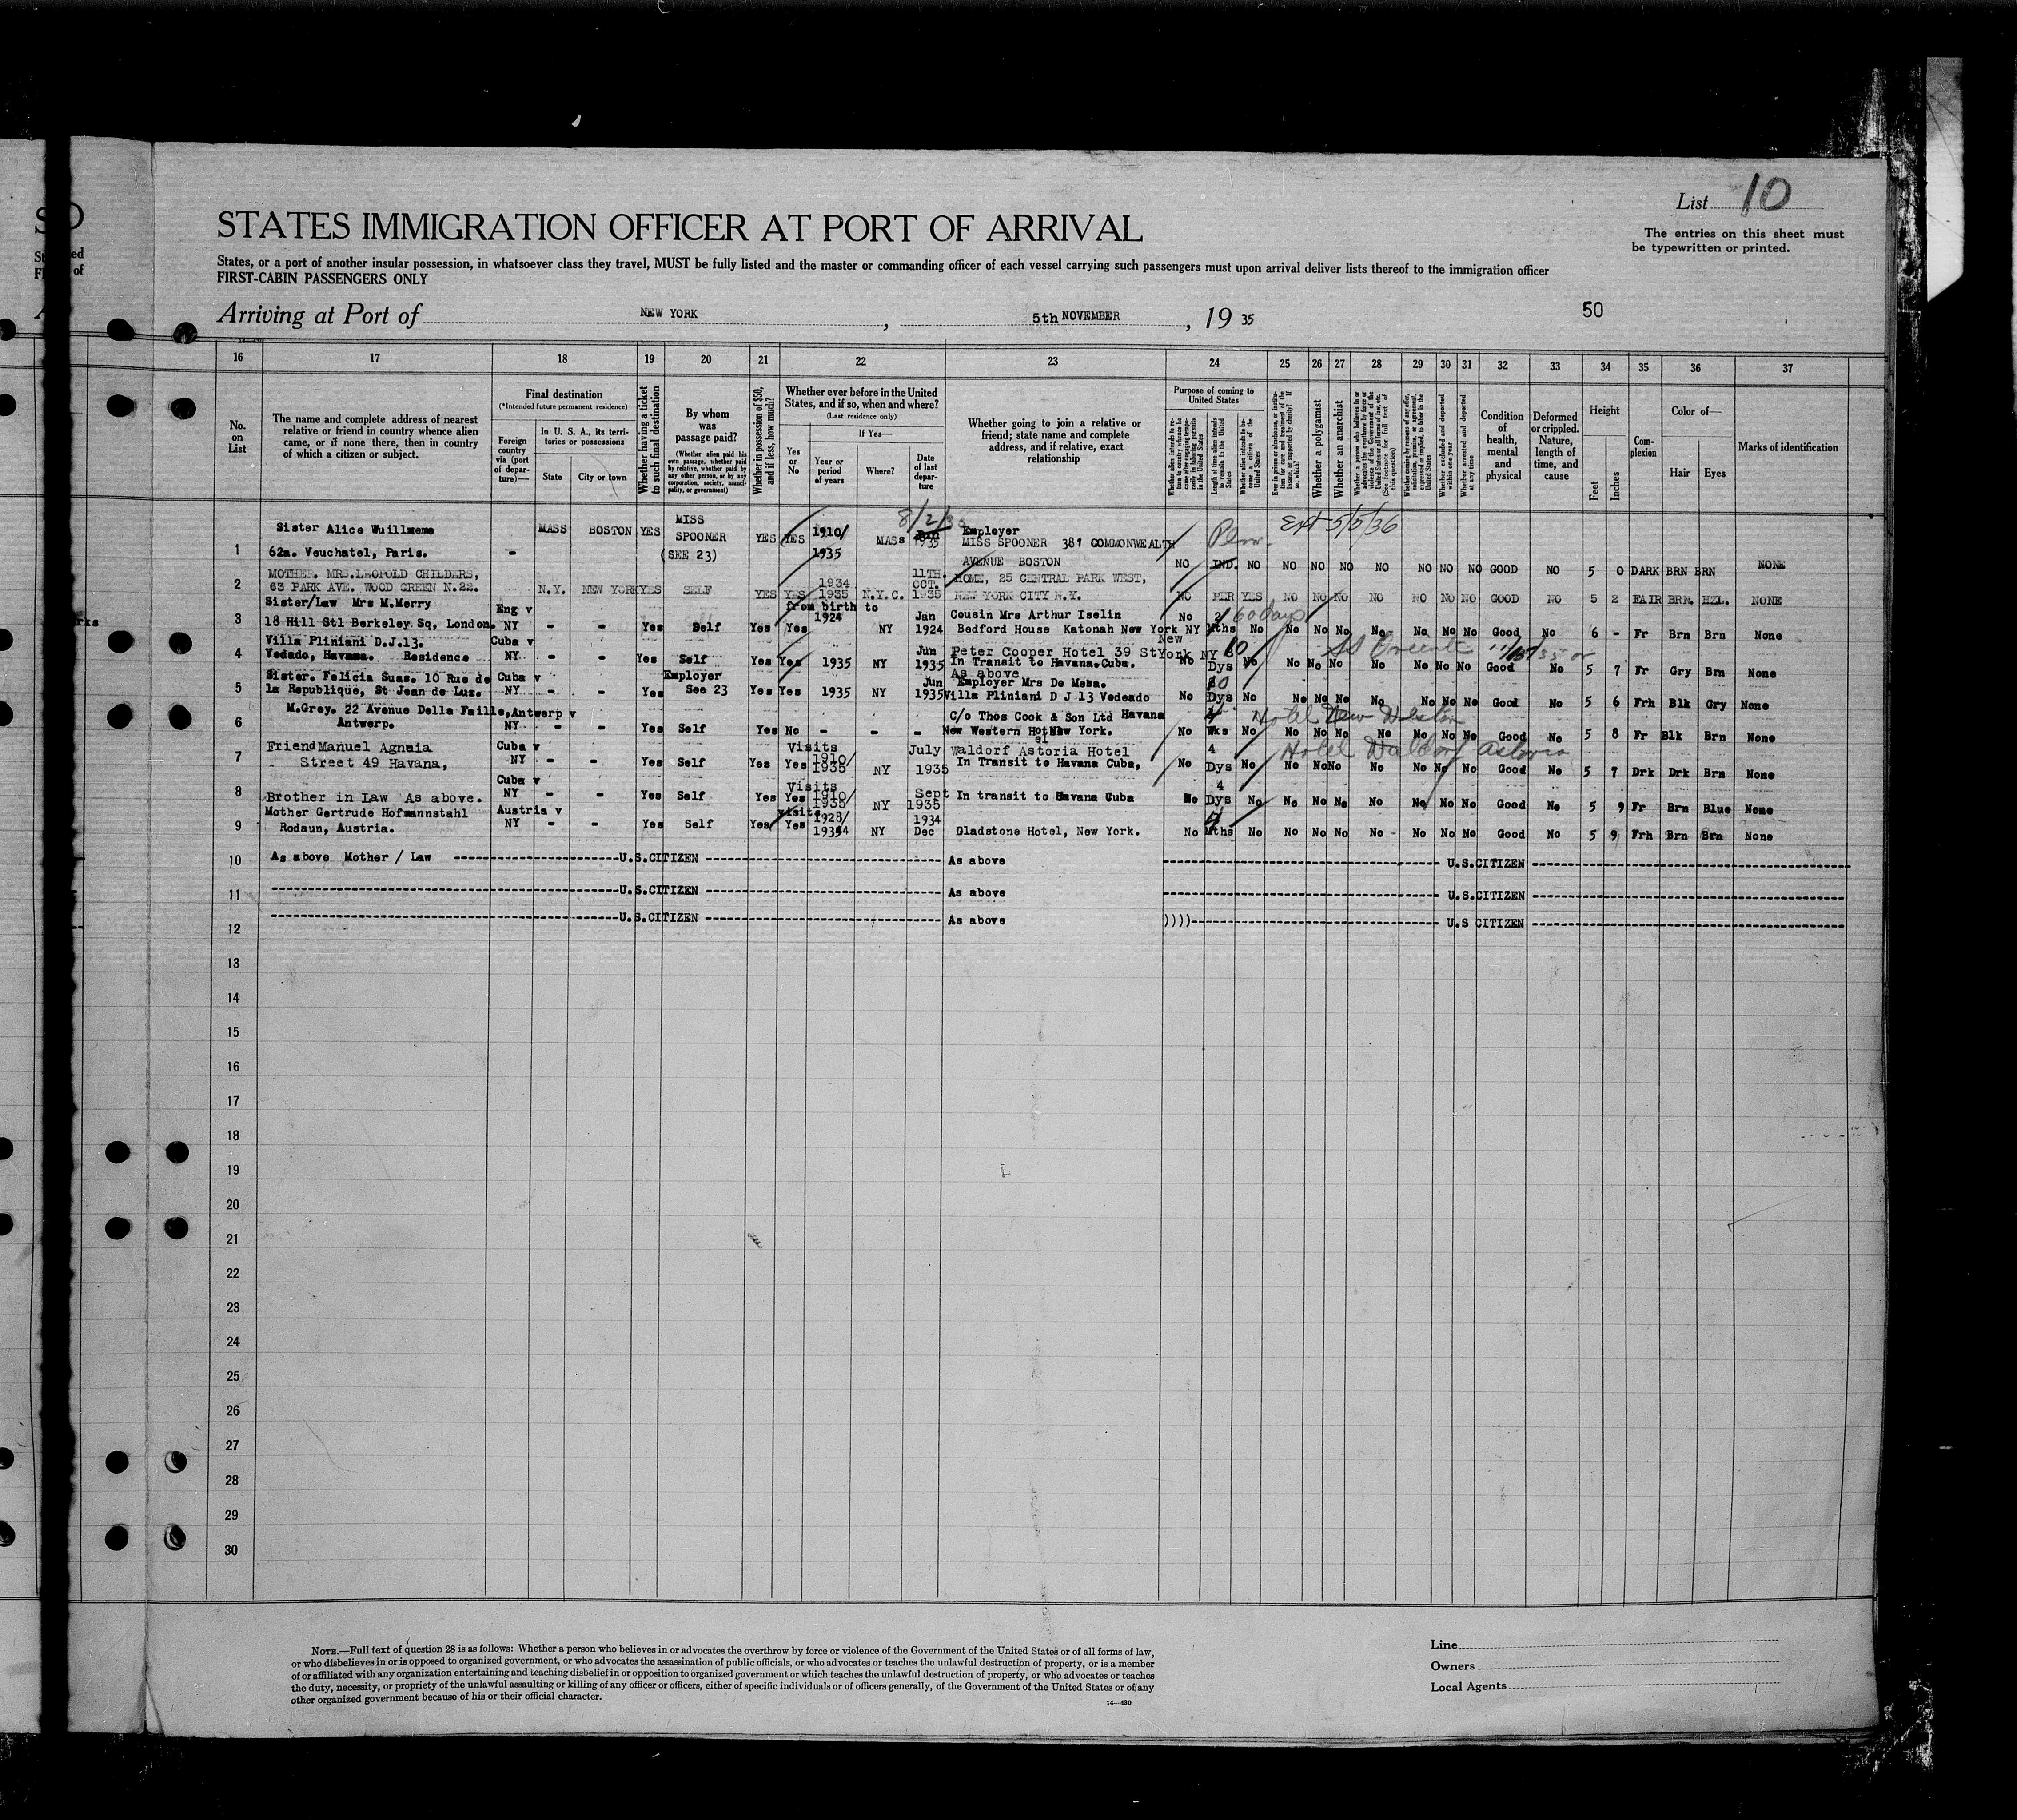 List 10
STATES IMMIGRATION OFFICER AT PORT OF ARRIVAL
The entries on this sheet must
be typewritten or printed.
States, or a port of another insular possession, in whatsoever class they travel, MUST be fully listed and the master or commanding officer of each vessel carrying such passengers must upon arrival deliver lists thereof to the immigration officer
FIRST-CABIN PASSENGERS ONLY
Arriving at Port of NEW YORK, 5th NOVEMBER, 19 35
50
16 17 18 19 20 21 22 23 24 25 26 27 28 29 30 31 32 33 34 35 36 37
No.
on
List
The name and complete address of nearest
relative or friend in country whence alien
came, or if none there, then in country
of which a citizen or subject.
Final destination
(*Intended future permanent residence)
Foreign
country
via (port
of depar-
ture)—
In U. S. A., its terri-
tories or possessions
State
City or town
Whether having a ticket
to such final destination
By whom
was
passage paid?
(Whether alien paid his
own passage, whether paid
by relative, whether paid by
any other person, or by any
corporation, society, munici-
pality, or government)
Whether in possession of $50,
and if less, how much?
Whether ever before in the United
States, and if so, when and where?
(Last residence only)
Yes
or
No
If Yes—
Year or
period
of years
Where?
Date
of last
depar-
ture
Whether going to join a relative or
friend; state name and complete
address, and if relative, exact
relationship
Purpose of coming to
United States
Length of time alien intends
to remain in the United
States
Whether a polygamist
Whether an anarchist
Condition
of
health,
mental
and
physical
Deformed
or crippled.
Nature,
length of
time, and
cause
Height
Feet
Inches
Com-
plexion
Color of—
Hair
Eyes
Marks of identification
8/2/3
Ext 5/5/36
Sister Alice Wuillmeme MASS BOSTON YES MISS SPOONER YES YES 1910/ MASS 1935 Employer
1 62a. Veuchatel, Paris. - (SEE 23) 1935 MISS SPOONER 381 COMMONWEALTH
AVENUE BOSTON NO IND. NO NO NO NO NO NO NO NO GOOD NO 5 0 DARK BRN BRN NONE
MOTHER. MRS.LEOPOLD CHILDERS, 11TH. OCT. HOME, 25 CENTRAL PARK WEST,
2 63 PARK AVE. WOOD GREEN N.22. N.Y. NEW YORK YES SELF YES YES 1934 1935 N.Y.C. 1935 NEW YORK CITY N.Y. NO PER YES NO NO NO NO NO NO NO GOOD NO 5 2 FAIR BRN. HZL. NONE
Sister/Law Mrs M.Merry Eng v from birth to Jan Cousin Mrs Arthur Iselin 60 days
3 18 Hill Stl Berkeley Sq, London. NY - - Yes Self Yes Yes 1924 NY 1924 Bedford House Katonah New York NY No 2 Mths No No No No No No No No Good No 6 - Fr Brn Brn None
Villa Pliniani D.J.13. Cuba v Jun Peter Cooper Hotel 39 St New York NY
4 Vedado, Havana. Residence NY - - Yes Self Yes Yes 1935 NY 1935 In Transit to Havana.Cuba. No 10 Dys No No No No No No No No Good No 5 7 Fr Gry Brn None
SS Oriente
As above
Sister. Felicia Suas. 10 Rue de Cuba v Employer Jun Employer Mrs De Mesa.
5 la Republique, St Jean de Luz. NY - - Yes See 23 Yes Yes 1935 NY 1935 Villa Pliniani D J 13 Vedeado No 10 Dys No No No No No No No No Good No 5 6 Frh Blk Gry None
M.Grey. 22 Avenue Della Faille, Antwerp v C/o Thos Cook & Son Ltd Havana Hotel New Weston
6 Antwerp. NY - - Yes Self Yes No - - - New Western Hotel New York. No 4 Wks No No No No No No No No Good No 5 8 Fr Blk Brn None
Friend Manuel Agnuia Cuba v Visits July Waldorf Astoria Hotel Hotel Waldorf Astoria
7 Street 49 Havana, NY - - Yes Self Yes Yes 1910/ 1935 NY 1935 In Transit to Havana Cuba, No 4 Dys No No No No No No No No Good No 5 7 Drk Drk Brn None
Cuba v Visits
8 Brother in Law As above. NY - - Yes Self Yes Yes 1910/ 1935 NY Sept 1935 In transit to Havana Cuba No 4 Dys No No No No No No No No Good No 5 9 Fr Brn Blue None
Mother Gertrude Hofmannstahl Austria v visits 1928/ 1934
9 Rodaun, Austria. NY - - Yes Self Yes Yes 1934 NY Dec Gladstone Hotel, New York. No 4 Mths No No No No No - No No No Good No 5 9 Frh Brn Brn None
10 As above Mother / Law U.S.CITIZEN As above U.S.CITIZEN
11 U.S.CITIZEN As above U.S.CITIZEN
12 U.S.CITIZEN As above )))) U.S CITIZEN
13
14
15
16
17
18
19
20
21
22
23
24
25
26
27
28
29
30
NOTE.—Full text of question 28 is as follows: Whether a person who believes in or advocates the overthrow by force or violence of the Government of the United States or of all forms of law,
or who disbelieves in or is opposed to organized government, or who advocates the assassination of public officials, or who advocates or teaches the unlawful destruction of property, or is a member
of or affiliated with any organization entertaining and teaching disbelief in or opposition to organized government or which teaches the unlawful destruction of property, or who advocates or teaches
the duty, necessity, or propriety of the unlawful assaulting or killing of any officer or officers, either of specific individuals or of officers generally, of the Government of the United States or of any
other organized government because of his or their official character.
14—430
Line
Owners
Local Agents